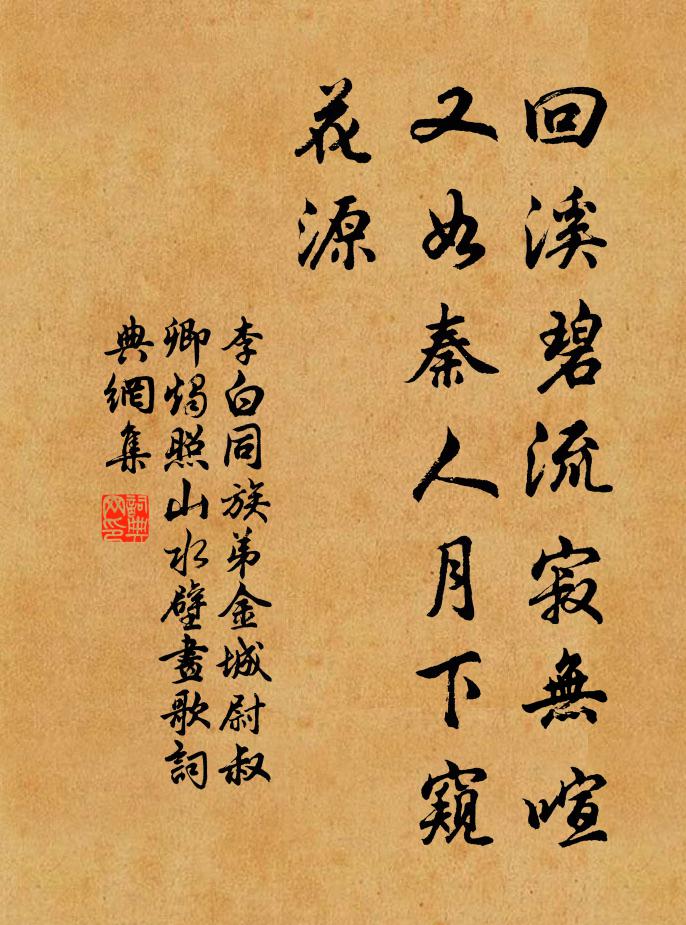 回溪碧流寂無喧
又如秦人月下窺
花源
李白同族弟金城尉叔
卿燭照山水壁畫歌詞
典網集
詞典
网印